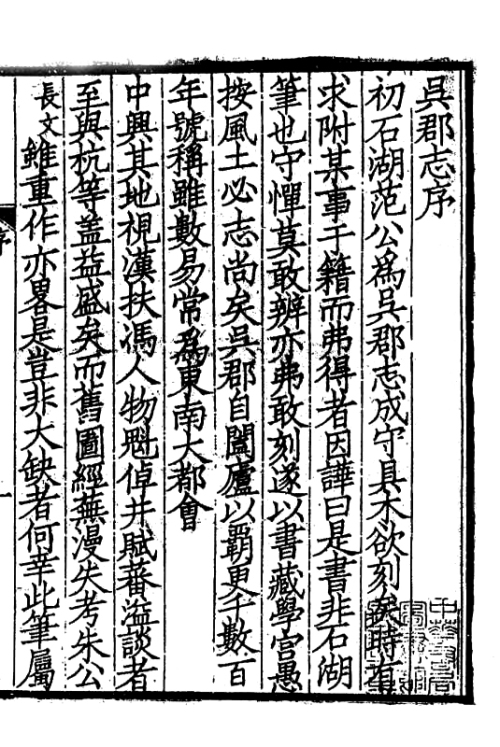 吳郡志序
初石湖范公爲吳郡志成守具木欲刻矣時有
求附某事于籍而弗得者因譁曰是書非石湖
筆也守憚莫敢辨亦弗敢刻遂以書藏學宮愚
按風土必志尚矣吳郡自闔廬以霸更千數百
年號稱雖數易常爲東南大都會
中興其地視漢扶馮人物魁倬井賦蕃溢談者
至與杭等蓋益盛矣而舊圖經蕪漫失考朱公
長文雖重作亦畧是豈非大缺者何幸此筆屬
序
一